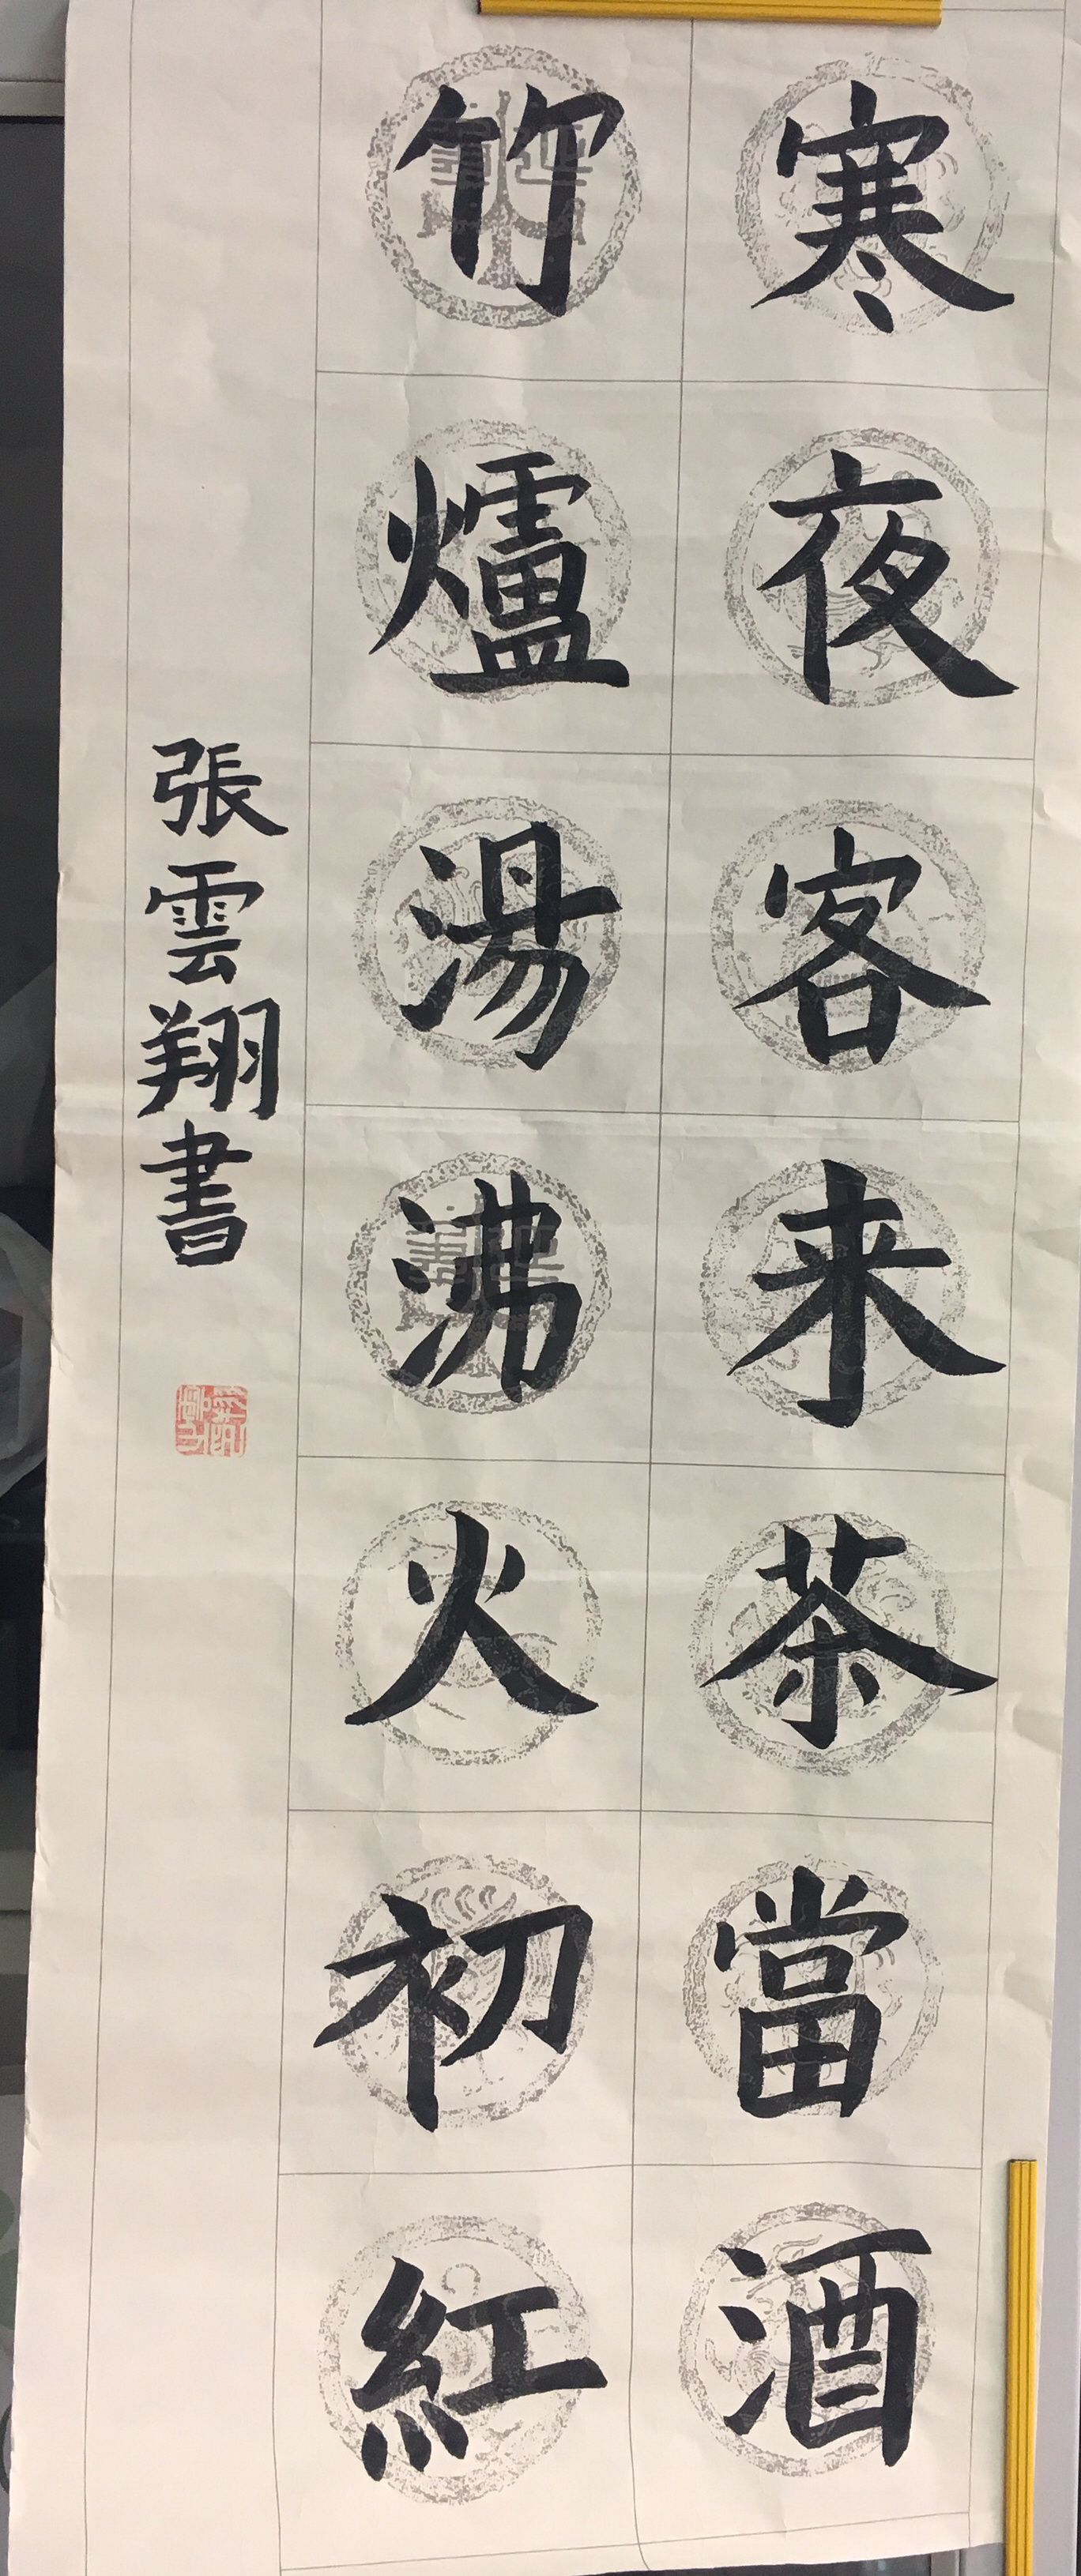 寒夜客来茶當酒
竹爐湯沸火初紅
張雲翔書